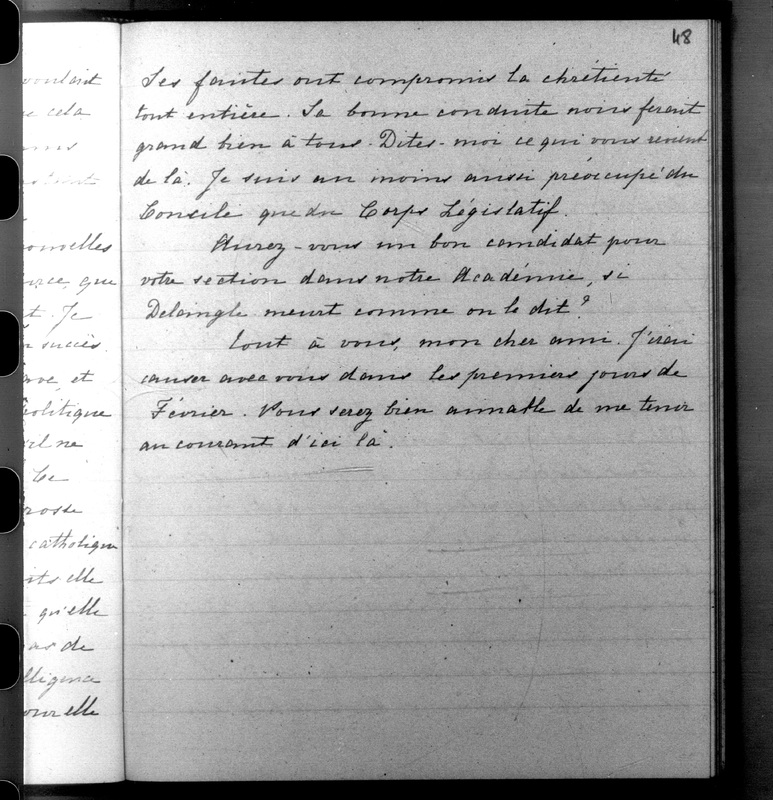 48
Ses fautes ont compromis la chrétienté
tout entière. Sa bonne conduite nous ferait
grand bien à tous. Dites-moi ce qui vous revient
de là. Je suis au moins aussi préoccupé du
Concile que du Corps Législatif.
Aurez-vous un bon candidat pour
votre section dans notre Académie, si
Delangle meurt comme on le dit?
Tout à vous, mon cher ami. J'irai
causer avec vous dans les premiers jours de
Février. Vous serez bien aimable de me tenir
au courant d'ici là.
voulait
cela
que
Je
succès
et
politique
ne
Ce
catholique
elle
qu'elle
de
elle